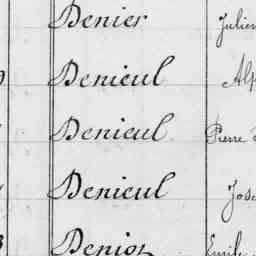 Denier Julien
Denieul
Denieul Pierre
Denieul
Deniot Emile